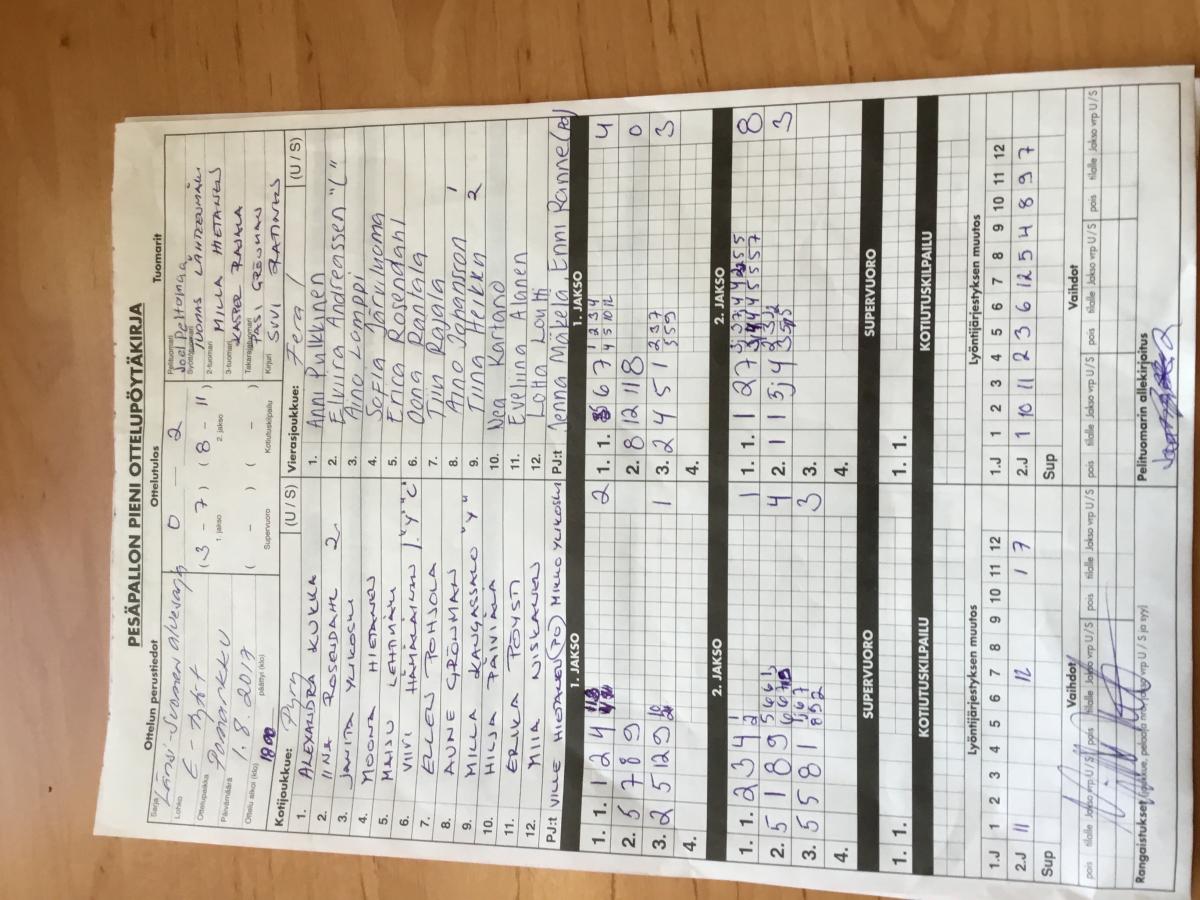 PESÄPALLON PIENI OTTELUPÖYTÄKIRJA
Ottelun perustiedot
Ottelutulos
Tuomarit
Sarja
Länsi-Suomen aluesarja
Lohko
E-tytöt
Ottelupaikka
Pomarkku
Päivämäärä
1.8.2017
Ottelu alkoi (klo) 1800
päättyi (klo)
0 - 2
(3 - 7) (8 - 11)
1. jakso 2. jakso
( - ) ( - )
Supervuoro Kotiutuskilpailu
Pelituomari
Joel Peltomaa
Syöttötuomari
TUOMAS LÄHTEENMÄKI
2-tuomari
MILLA HIETANEN
3-tuomari
KASPER RAJALA
Takarajatuomari
PASI GRÖNMAN
Kirjuri
SUVI RATINEN
Kotijoukkue: Pyry (U / S)
1. ALEXANDRA KUKKA
2. IINA ROSENDAHL 2
3. JANITA YLIKOSKI
4. MOONA HIETANEN
5. MAIJU LEHTIMÄKI
6. VIIVI HÄMÄLÄINEN
7. ELLEN POHJOLA
8. AUNE GRÖNMAN
9. MILLA KANGASSALO "Y"
10. HILJA PÄIVIÄLÄ
11. ERIKA PÖYSTI
12. MIIA NISKANEN
PJ:t VILLE HIETANEN (PO) MIKKO YLIKOSKI
Vierasjoukkue: Fera / (U / S)
1. Anni Pulkkinen
2. Elviira Andreassen
3. Aino Lamppi
4. Sofia Järviluoma
5. Erira Rosendahl
6. Oona Rantala
7. Tiiu Rajala
8. Aino Johansson 1
9. Tiina Heikka 2
10. Nea Kartano
11. Eveliina Alanen
12. Lotta Loutti
PJ:t Jenna Mäkelä Enni Ranne (PO)
1. JAKSO
1. JAKSO
1. 1. 1 2 4
2
2. 5 7 8 9
3. 2 5 12 9
1
4.
1. 1. 6 7
4
2. 8 12 11 8
0
3. 2 4 5 1
3
4.
2. JAKSO
2. JAKSO
1. 1. 2 3 4
1
2. 5 1 8 9
4
3. 5 5 8 1
3
4.
1. 1. 1 2 7
8
2. 1 1
3
3.
4.
SUPERVUORO
SUPERVUORO
1. 1.
1. 1.
KOTIUTUSKILPAILU
KOTIUTUSKILPAILU
Lyöntijärjestyksen muutos
Lyöntijärjestyksen muutos
1.J 1 2 3 4 5 6 7 8 9 10 11 12
2.J 11 12 1 7
Sup
1.J 1 2 3 4 5 6 7 8 9 10 11 12
2.J 1 10 11 2 3 6 12 5 4 8 9 7
Sup
Vaihdot
Vaihdot
pois tilalle Jakso vrp U / S pois tilalle Jakso vrp U / S pois tilalle Jakso vrp U / S
pois tilalle Jakso vrp U / S pois tilalle Jakso vrp U / S pois tilalle Jakso vrp U / S
Pelituomarin allekirjoitus